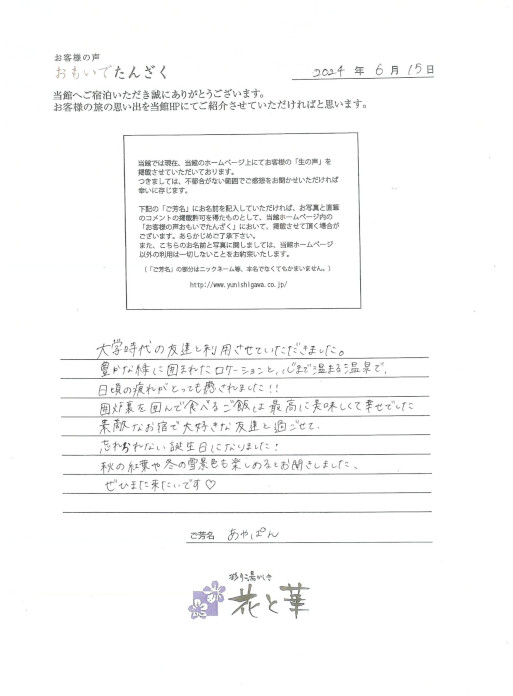 お客様の声
おもいでたんざく
2024 年 6 月 15 日
当館へご宿泊いただき誠にありがとうございます。
お客様の旅の思い出を当館HPにてご紹介させていただければと思います。
当館では現在、当館のホームページ上にてお客様の「生の声」を
掲載させていただいております。
つきましては、不都合がない範囲でご感想をお聞かせいただければ
幸いに存じます。
下記の「ご芳名」にお名前を記入していただければ、お写真と直筆
のコメントの掲載許可を得たものとして、当館ホームページ内の
「お客様の声おもいでたんざく」において、掲載させて頂く場合が
ございます。あらかじめご了承下さい。
また、こちらのお名前と写真に関しましては、当館ホームページ
以外の利用は一切しないことをお約束いたします。
（「ご芳名」の部分はニックネーム等、本名でなくてもかまいません。）
http://www.yunishigawa.co.jp/
大学時代の友達と利用させていただきました。
豊かな緑に囲まれたロケーションと、心まで温まる温泉で、
日頃の疲れがとっても癒されました!!
囲炉裏を囲んで食べるご飯は最高に美味しくて幸せでした
素敵なお宿で大好きな友達と過ごせて、
忘れられない誕生日になりました!
秋の紅葉や冬の雪景色も楽しめるとお聞きしました、
ぜひまた来たいです♡
ご芳名 あやぱん
彩り湯かしき
花と華